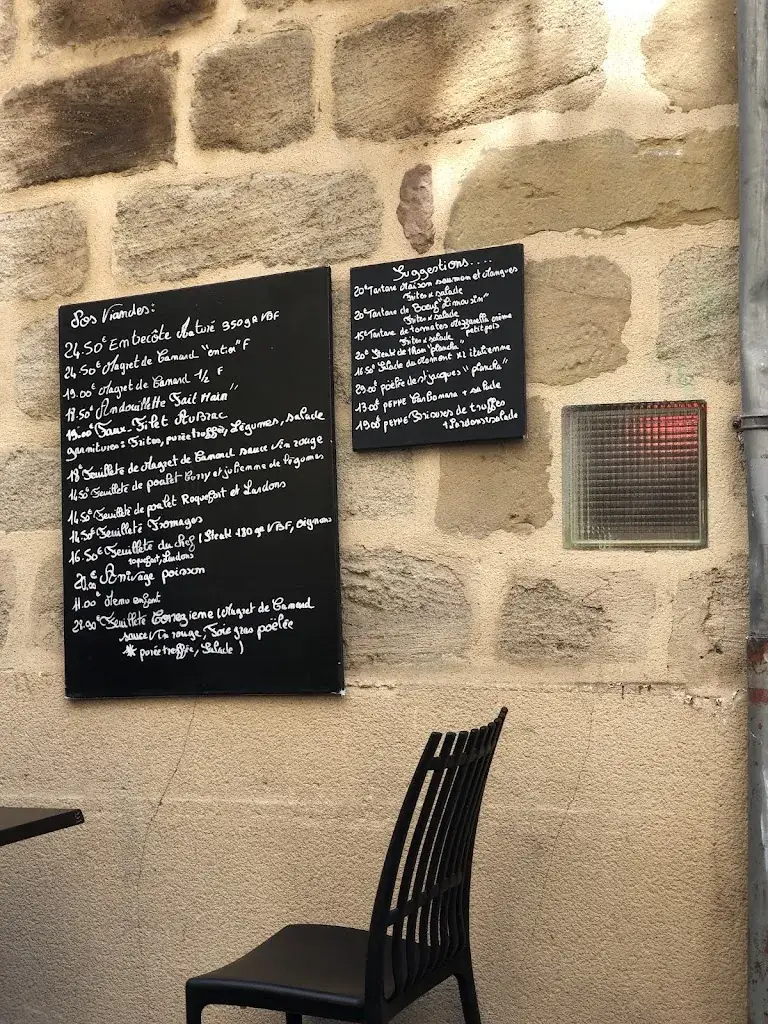 Nos Viandes:
24.50€ Entrecôte Maturé 350gr VBF
24.50€ Magret de Canard "entier" F
19.00€ Magret de Canard 1/2 F
18.50€ Andouillette Fait Main"
19.00€ Faux-Filet Aubrac
garnitures: Frites, purée truffée, Légumes, salade
18€ Feuilleté de Magret de Canard sauce vin rouge
14.50€ Feuilleté de poulet Curry et julienne de légumes
14.50€ Feuilleté de poulet Roquefort et Lardons
14.50€ Feuilleté Fromages
16.50€ Feuilleté du chef (Steak 180 gr VBF, oignons
roquefort, Lardons
Arrivage poisson
11.00€ Menu enfant
Feuilleté Correzienne (Magret de Canard
sauce vin rouge, Foie gras poêlée
* purée truffée, Salade)
Suggestions....
20€ Tartare Maison saumon et Mangues
Frites x salade
20€ Tartare de Boeuf "Limousin"
Frites x salade
15€ Tartare de tomates Mozzarella crème
Frites x salade petit pois
20€ Steak de Thon "plancha"
16.50€ Salade du Moment XL italienne
poêlée de st jacques "plancha"
13.00 penne Carbonara + salade
19.00 penne Brisures de truffes
+ Lardons + salade